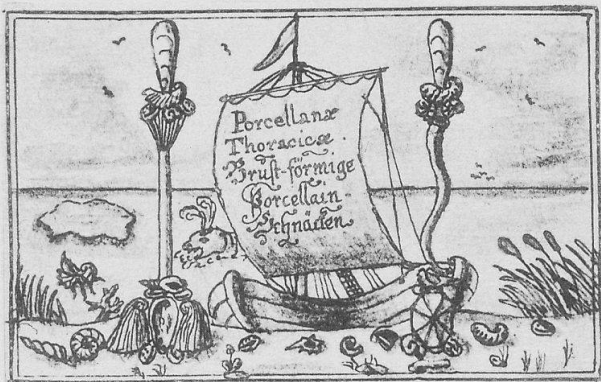 Porcellanæ
Thoracicæ.
Brust-förmige
Porcellain-
Schnäcken